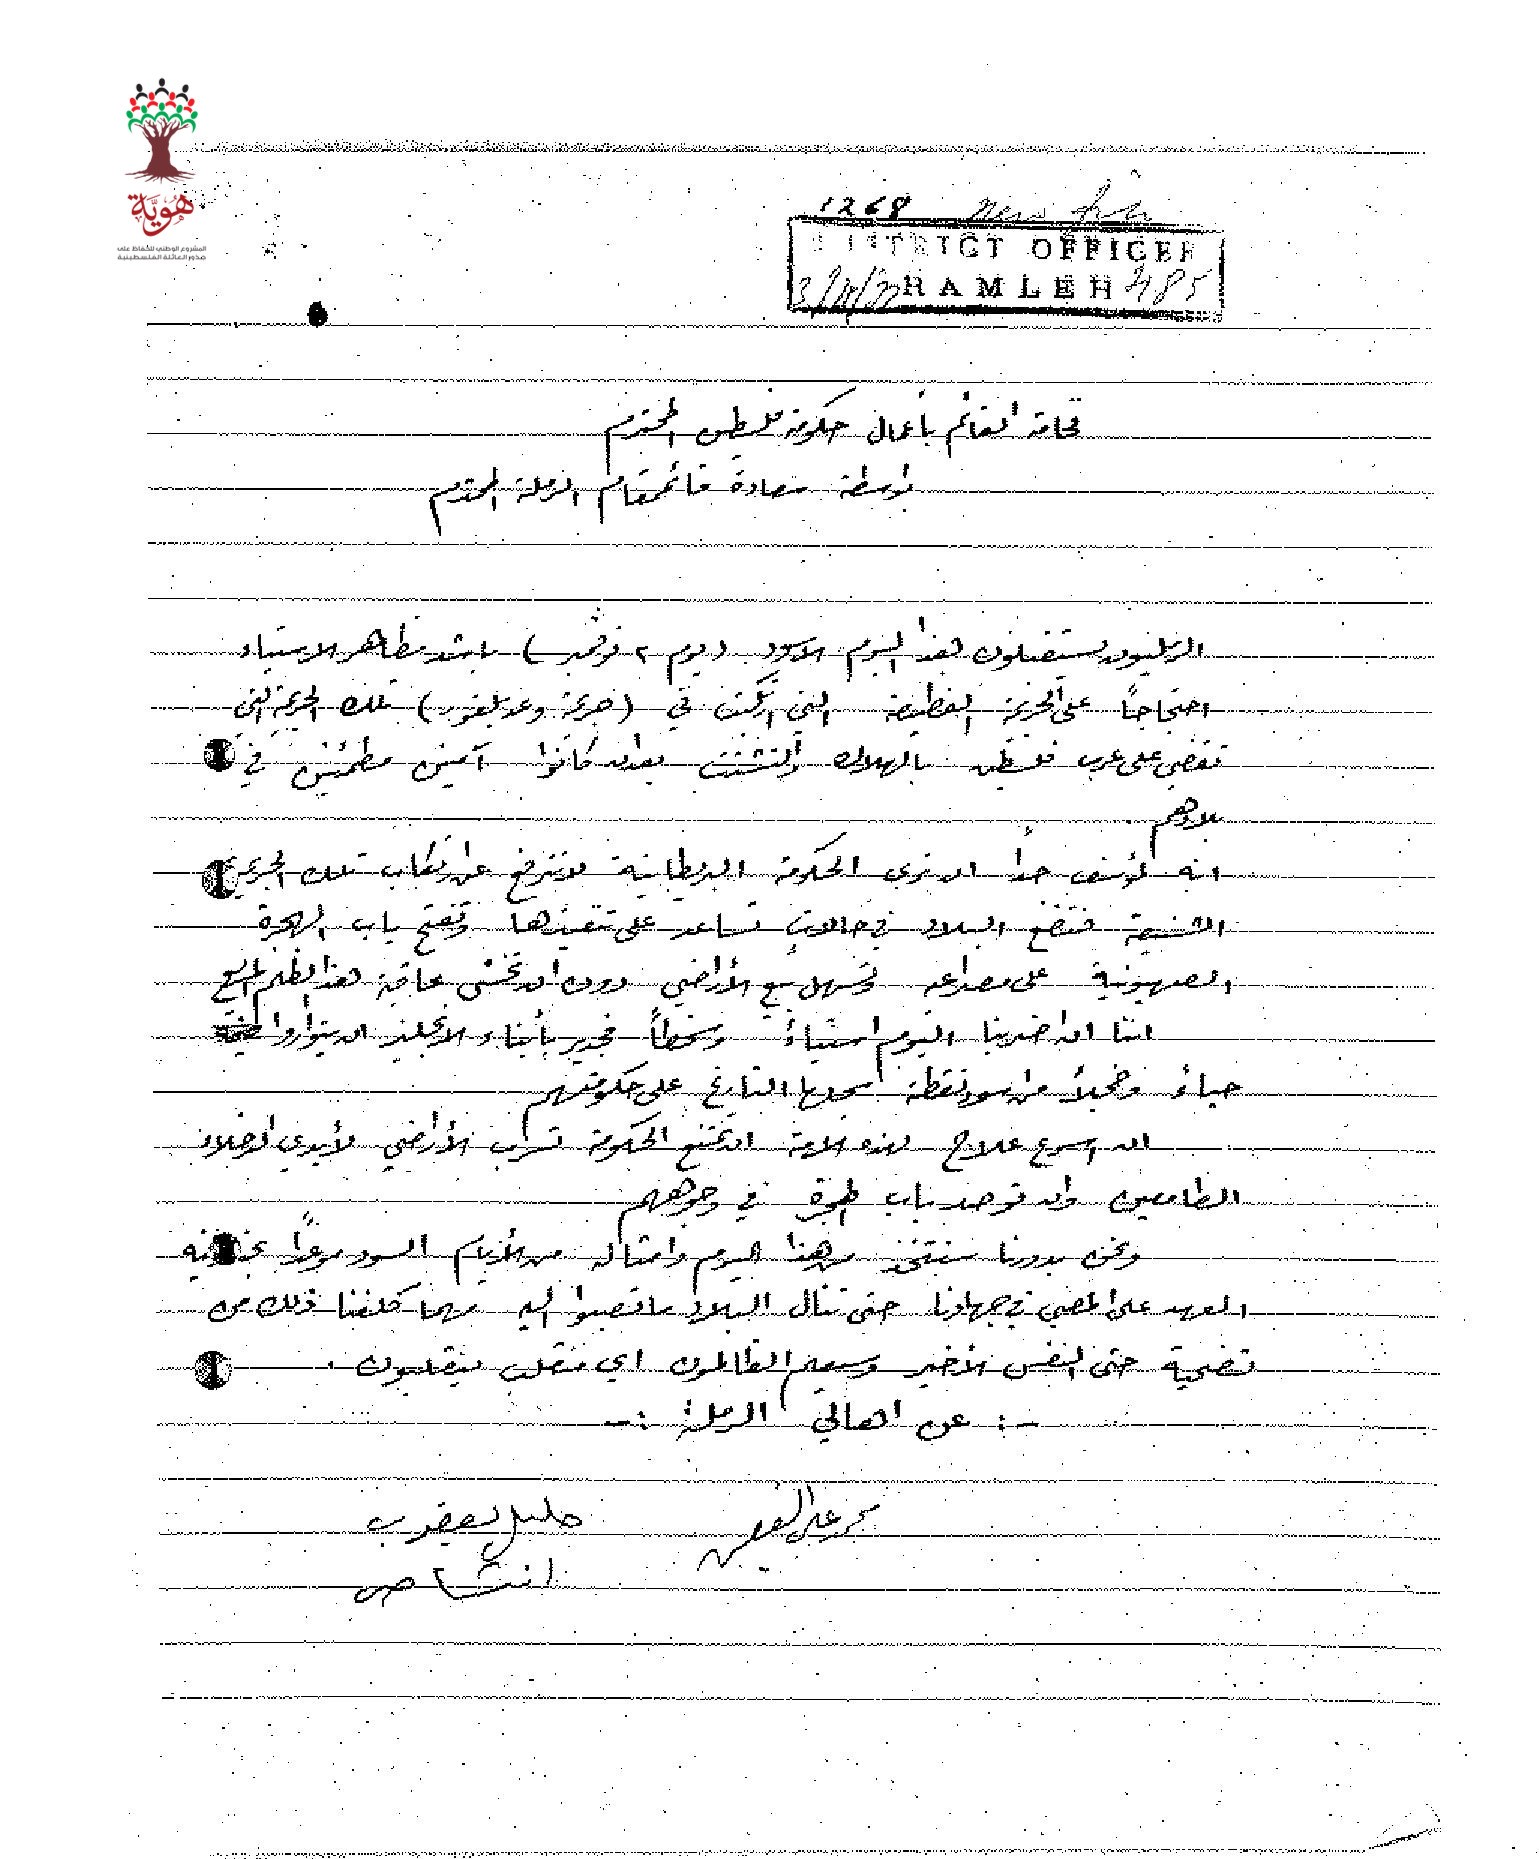 هوية
المشروع الوطني للحفاظ على
جذور العائلة الفلسطينية
1268
DISTRICT OFFICER
RAMLEH 485
فخامة القائم بأعمال حكومة فلسطين المحترم
بواسطة سعادة قائمقام الرملة المحترم
الرمليون يستقبلون هذا اليوم الاسود (يوم ٢ نوفمبر) باشد مظاهر الاستياء
احتجاجاً على الجريمة الفظيعة التي ارتكبت في (جريمة وعد بلفور) تلك الجريمة التي
تقضي على عرب فلسطين بالهلاك والتشتت بعد ان كانوا آمنين مطمئنين في
بلادهم
انه لمؤسف جداً ان نرى الحكومة البريطانية لا تترفع عن ارتكاب تلك الجريمة
الشنيعة فتضع البلاد في حالات تساعد على تنفيذها وتفتح باب الهجرة
الصهيونية على مصراعيه وتسهل بيع الأراضي دون ان تخشى عاقبة هذا الظلم المريع
اننا ان اضربنا اليوم استياءً وسخطاً فجدير بأبناء الانجليز ان يتواروا
حياءً وخجلاً من اسود نقطة سجلها التاريخ على حكومتهم
ان اسرع علاج لهذه الازمة ان تمنع الحكومة تسرب الأراضي لأيدي الدخلاء
الطامعين وان توصد باب الهجرة في وجوههم
ونحن بدورنا سنتخذ من هذا اليوم وامثاله من الأيام السود موعداً نجدد فيه
العهد على المضي في جهادنا حتى تنال البلاد ما تصبوا اليه مهما كلفنا ذلك من
تضحية حتى النفس الأخير وسيعلم الظالمون اي منقلب ينقلبون .
-: عن اهالي الرملة :-
خليل يعقوب